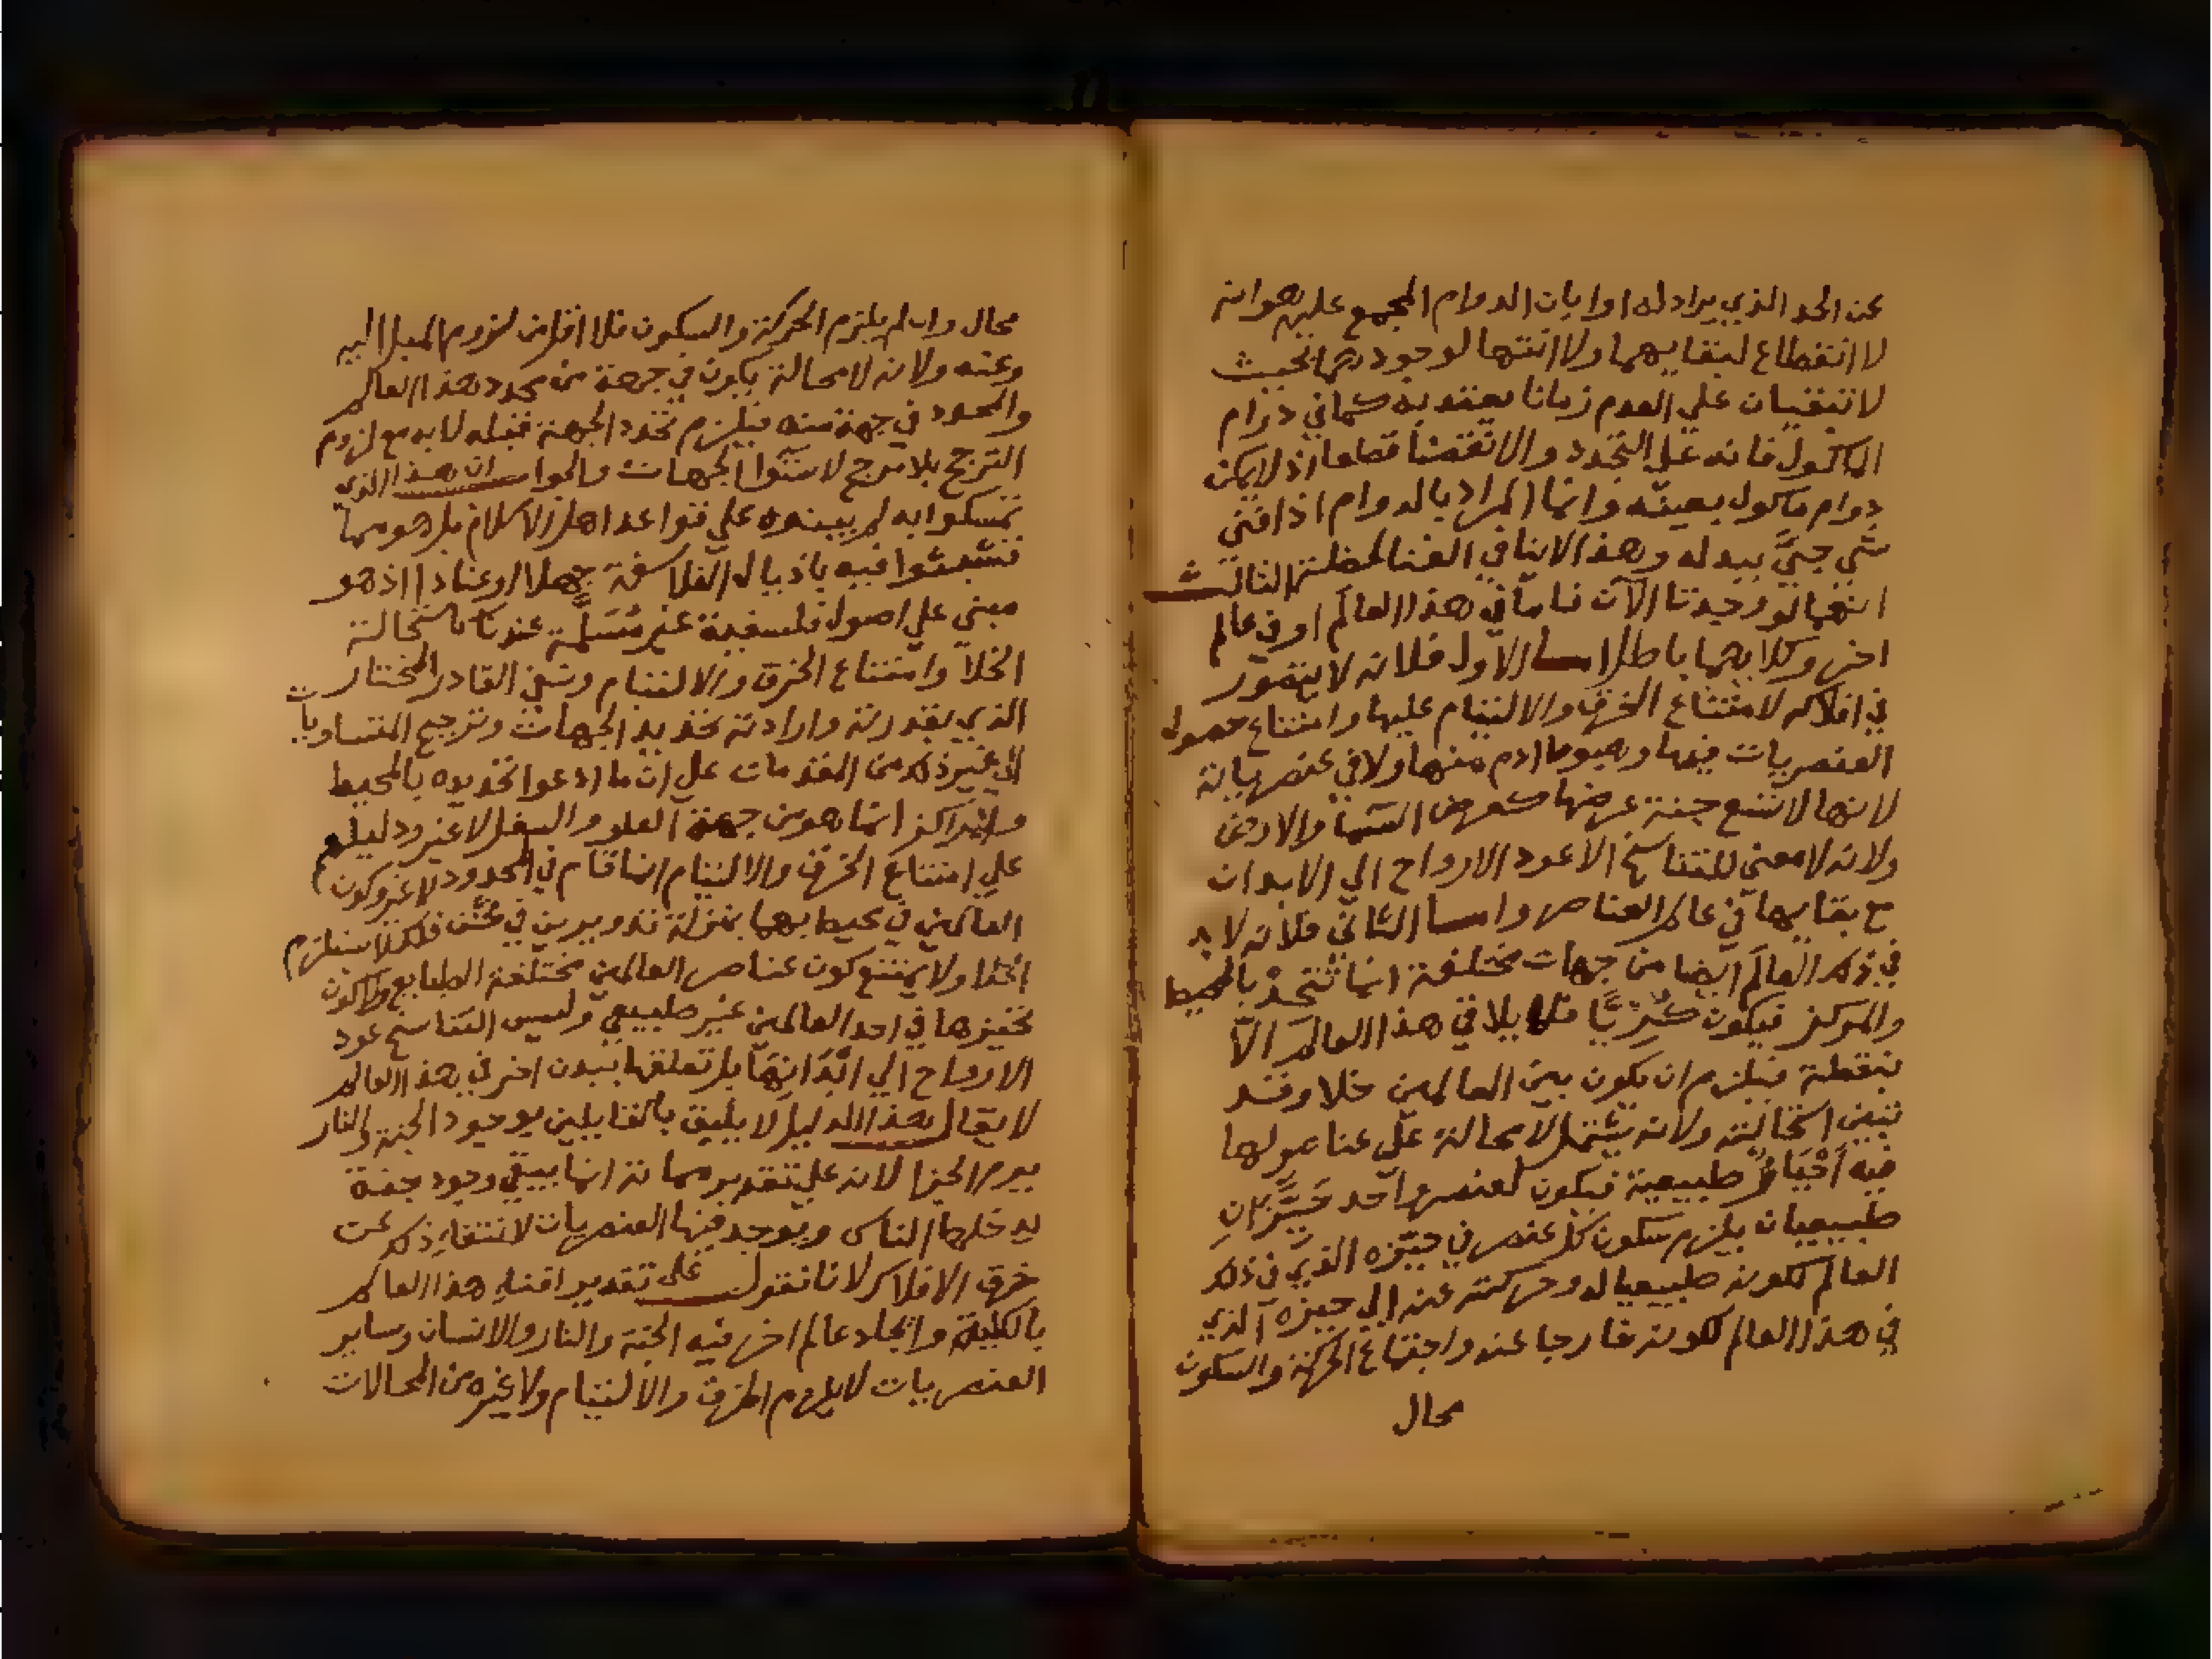 عن الحد الذي يراد له او ابان الدوام المجمع عليه هو انه
لا انقطاع لبقايهما ولا انتها لوجودهما بحيث
لا تبقيان على العدم زمانا يعتد به كما في دوام
الماكول فانه على التجدد والانقضا قطعا اذ لا يمكن
دوام ماكول بعينه وانما المراد بالدوام اذا فني
شي جيَّ ببدله وهذا لا ينافي الفنا لحظة الثالث
انهما لو وجدتا الآن فاما في هذا العالم او في عالم
اخر وكلاهما باطل اما الاول فلانه لا يتصور
في افلاكه لامتناع الخرق والالتيام عليها وامتناع حصول
العنصريات فيها وهبوط ادم منها ولا في عنصرياته
لانها لا تسع جنة عرضها كعرض السما والارض
ولانه لا معنى للتناسخ الا عود الارواح الي الابدان
مع بقايها في عالم العناصر واما الثاني فلانه لا بد
في ذلك العالم ايضا من جهات مختلفة انما تتحد بالمحيط
والمركز فيكون كُرِيًّا فلا يلاقي هذا العالم الّا
بنقطة فيلزم ان يكون بين العالمين خلا وقد
تبين استحالته ولانه يشتمل لا محالة على عناصر لها
فيه أحْيَازٌ طبيعية فيكون لعنصر واحد حَيِّزانِ
طبيعيان يلزم سكون كل عنصر في حيزه الذي في ذلك
العالم لكونه طبيعيا له وحركته عنه الي حيزه الذي
في هذا العالم لكونه خارجا عنه واجتماع الحركة والسكون
محال
محال وان لم يلزم الحركة والسكون فلا اقل من لزوم الميل اليه
وعنه ولانه لا محالة يكون في جهة من محدد هذا العالم
والمحدد في جهة منه فيلزم تحدد الجهة قبله لا به مع لزوم
الترجح بلا مرجح لاستوا الجهات والجواب ان هذا الذي
تمسكوا به لم يبينوه على قواعد اهل الاسلام بل هو مما
تشبثوا فيه باذيال الفلاسفة جهلا او عنادا اذ هو
مبني على اصول فلسفية غير مُسَلَّمة عندنا كاستحالة
الخلا وامتناع الخرق والالتيام ونفي القادر المختار
الذي بقدرته وارادته تحديد الجهات وترجيح المتساويات
الي غير ذلك من المقدمات على ان ما ادعوا تحديده بالمحيط
والمركز انما هو من جهة العلو والسفل لا غير ودليلهم
على امتناع الخرق والالتيام انما قام في المحدود لا غير وكون
العالمين في محيط بهما بمنزلة تدويرين في ثخن فلك لا يستلزم
الخلا ولا يمتنع كون عناصر العالمين مختلفة الطبايع ولا كون
تحيزها في احد العالمين غير طبيعي وليس التناسخ عود
الارواح الي ابْدَانِهَا بل تعلقها ببدن اخر في هذا العالم
لا يقال هذا الدليل لا يليق بالقايلين بوجود الجنة والنار
يوم الجزا لانه على تقدير تمامه انما ينفي وجود جنة
يدخلها الناس ويوجد فيها العنصريات لابتنايه ذلك عن
خرق الافلاك لانا نقول على تقدير افنايه هذا العالم
بالكلية وايجاد عالم اخر فيه الجنة والنار والانسان وساير
العنصريات لا يلزم الخرق والالتيام ولا غيره من المحالات